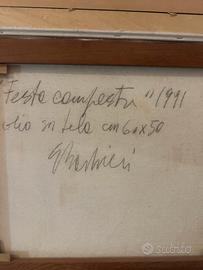 "Festa campestre" 1991
olio su tela cm 60x50
GBarbieri
subito